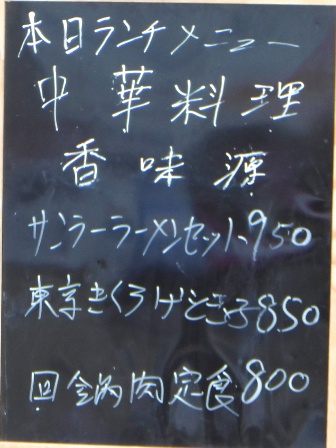 本日ランチメニュー
中華料理
香味源
サンラーラーメンセット、950
東京きくろげと玉子850
回鍋肉定食800